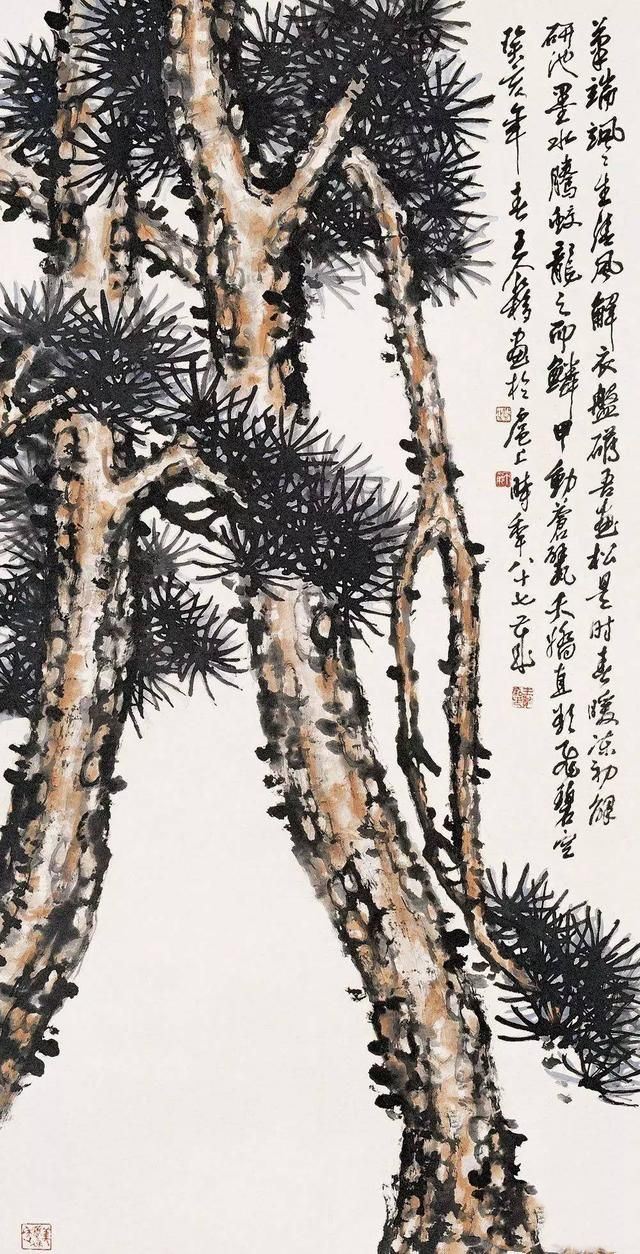 筆端颯〻生清風解衣盤礴吾畫松是时春暖凍初解
研池墨水騰蛟龍之而鱗甲動蒼鬣夭矯直欲飛碧空
癸亥年春王个簃畫於滬上時年八十七并記